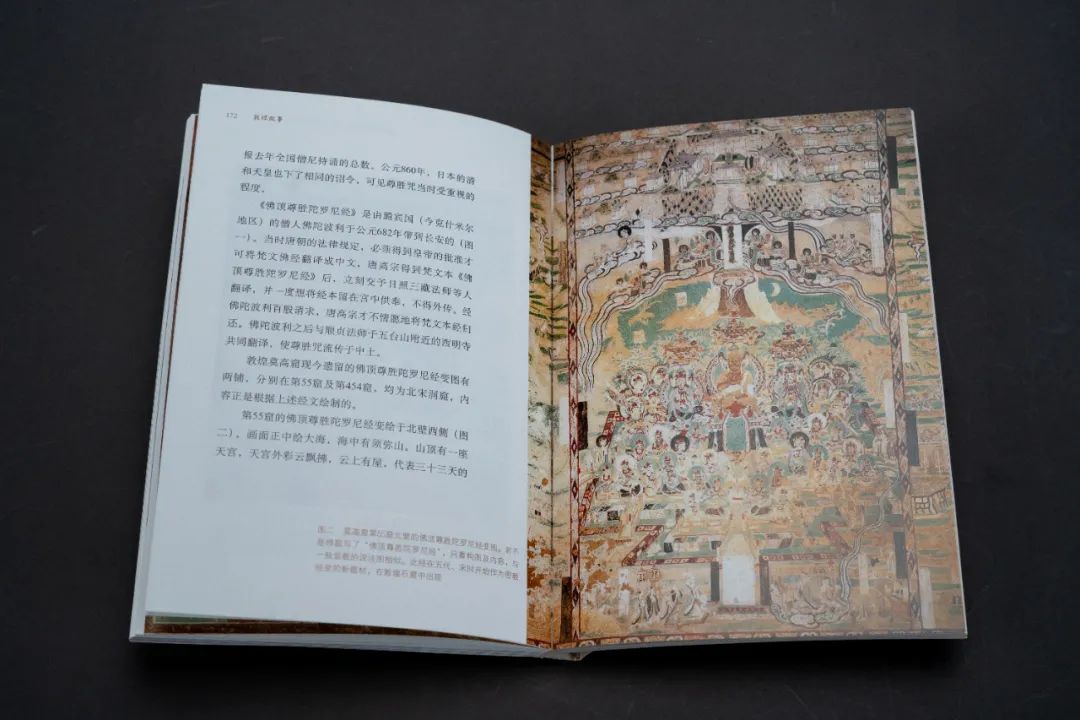 172 敦煌故事
报去年全国僧尼持诵的总数。公元860年，日本的清
和天皇也下了相同的诏令，可见尊胜咒当时受重视的
程度。
《佛顶尊胜陀罗尼经》是由罽宾国（今克什米尔
地区）的僧人佛陀波利于公元682年带到长安的（图
一）。当时唐朝的法律规定，必须得到皇帝的批准才
可将梵文佛经翻译成中文，唐高宗得到梵文本《佛
顶尊胜陀罗尼经》后，立刻交予日照三藏法师等人
翻译，并一度想将经本留在宫中供奉，不得外传。经
佛陀波利百般请求，唐高宗才不情愿地将梵文本经归
还。佛陀波利之后与顺贞法师于五台山附近的西明寺
共同翻译，使尊胜咒流传于中土。
敦煌莫高窟现今遗留的佛顶尊胜陀罗尼经变图有
两铺，分别在第55窟及第454窟，均为北宋洞窟，内
容正是根据上述经文绘制的。
第55窟的佛顶尊胜陀罗尼经变绘于北壁西侧（图
二），画面正中绘大海，海中有须弥山。山顶有一座
天宫，天宫外彩云飘拂，云上有屋，代表三十三天的
图二 莫高窟第55窟北壁的佛顶尊胜陀罗尼经变图。若不
是榜题写了“佛顶尊胜陀罗尼经”，只看构图及内容，与
一般显教的说法图相似。此经在五代、宋时开始作为密教
经变的新题材，在敦煌石窟中出现